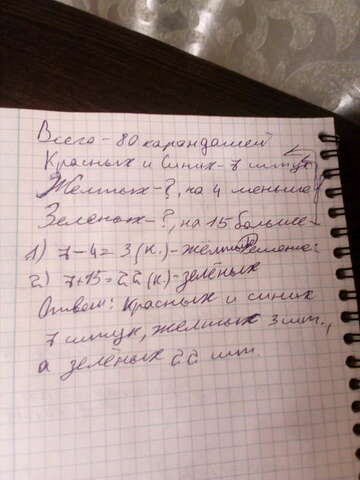 Всего - 80 карандашей
Красных и синих - 7 штук
Жёлтых - ?, на 4 меньше
Зелёных - ?, на 15 больше
1) 7 - 4 = 3 (к.) - жёлтых
2) 7 + 15 = 22 (к.) - зелёных
Ответ: красных и синих
7 штук, жёлтых 3 шт.,
а зелёных 22 шт.